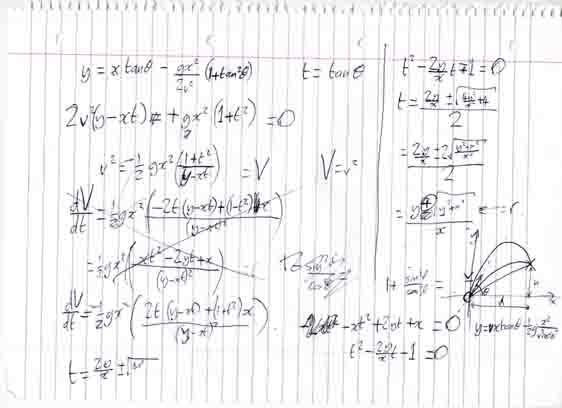 y = x tanθ - gx²/2v² (1+tan²θ)
t = tanθ
2v²(y-xt) + gx²(1+t²) = 0
v² = -1/2 gx² (1+t²/y-xt) = V
V = v²
dV/dt = 1/2 gx² (-2t(y-xt)+(1-t²)x/(y-xt)²)
= 1/2 gx² (xt²-2yt+x/(y-xt)²)
dV/dt = -1/2 gx² (2t(y-xt)+(1+t²)x/(y-xt)²)
t = 2y/x ±
-xt²+2yt+x = 0
t² - 2y/x t - 1 = 0
t² - 2y/x t - 1 = 0
t = 2y/x ± √4y²/x²+4 / 2
= 2y/x ± 2√y²+x²/x² / 2
= y ± √y²+x² / x
r
y
x